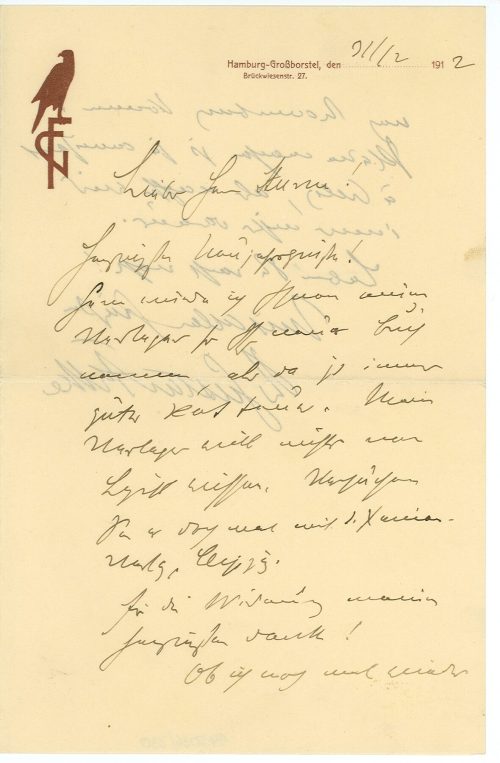 Hamburg-Großborstel, den 31/12 1912
Brückwiesenstr. 27.
Lieber Herr
Herzlichste Neujahrsgrüße!
Gern würde ich Ihnen meinen
Verleger für Ihr neues Buch
nennen, aber da ist immer
guter Rat teuer. Mein
Verleger will nichts von
Lyrik wissen. Versuchen
Sie es doch mal mit d. Xenien-
Verlag, Leipzig.
Für die Widmung meinen
herzlichsten Dank!
Ob ich noch mal wieder